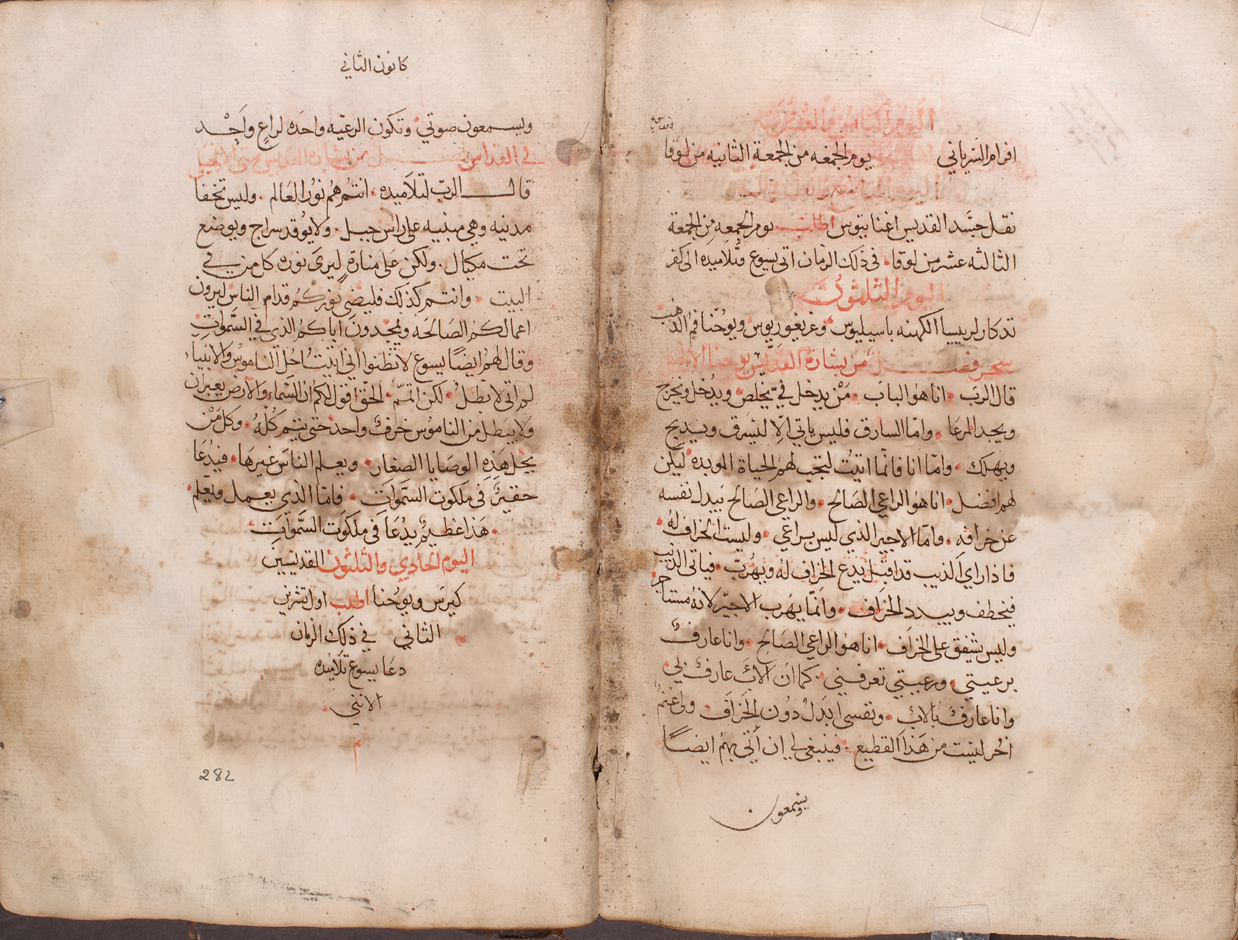 اليوم الثامن والعشرين
افرام السرياني يوم الجمعه من الجمعة الثانيه من لوقا
اليوم التاسع والعشرين
نقل جسد القديس اغناتيوس اطلب يوم الجمعه من الجمعة
الثالثه عشر من لوقا · في ذلك الزمان اتى يسوع وتلاميذه الى كفر
اليوم الثلثون
تدكار لرييسا الكهنه باسيليوس وغريغوريوس ويوحنا فم الذهب
سحر فصل من بشارة القديس يوحنا
قال الرب · انا هو الباب · من يدخل في يخلص ويدخل ويخرج
ويجد المرعا · واما السارق فليس ياتي الا ليسرق ويدبح
ويهلك · واما انا فانما اتيت لتجب لهم الحياة الموبده ليكن
لهم افضل · انا هو الراعي الصالح · والراعي الصالح يبدل نفسه
عن خرافه · واما الاجير الذي ليس براعي · وليست الخراف له
فاذا راى الذيب قد اقبل يدع الخراف له ويهرب · فياتي الذيب
فيخطف ويبدد الخراف · وانما يهرب الاجير لانه مستاجر
وليس يشفق على الخراف · انا هو الراعي الصالح · وانا عارف
برعيتي · ورعيتي تعرفني · كما ان الاب عارف بي
وانا عارف بالاب · ونفسي ابدل دون الخراف · ولي غنم
اخر ليست من هذا القطيع · فينبغي لي ان اتي بهم ايضاً
ويسمعون
كانون الثاني
ويسمعون صوتي · وتكون الرعيه واحده لراعٍ واحد
في القداس فصل من بشارة القديس متى الانجيلي
قال الرب لتلاميده · انتم هم نور العالم · وليس تخفا
مدنيه وهي مبنيه على راس جبل · ولا يوقد سراج ويوضع
تحت مكيال · ولكن على منارة ليرى نوره كل من في
البيت · وانتم كذلك فليضي نوركم قدام الناس ليرون
اعمالكم الصالحه ويمجدون اباكم الذي في السموات
وقال لهم ايضاً يسوع لا تظنوا اني اتيت احل الناموس والانبيا
لم اتي لابطل · لكن اتمم · الحق اقول لكم ان السماء والارض يعبران
ولا يبطل من الناموس حرف واحد حتى يتم كله · وكل من
يحل هذه الوصايا الصغار · ويعلم الناس غيرها · فيدعا
حقيرٌ في ملكوت السموات · فاما الذي يعمل ويعلم
· هذا عظيمٌ يدعا في ملكوت السموات
اليوم الحادي والثلثون القديسين
كيرس ويوحنا اطلب اول تشرين
الثاني في ذلك الزمان
دعا يسوع تلاميده
الاثني
م
282